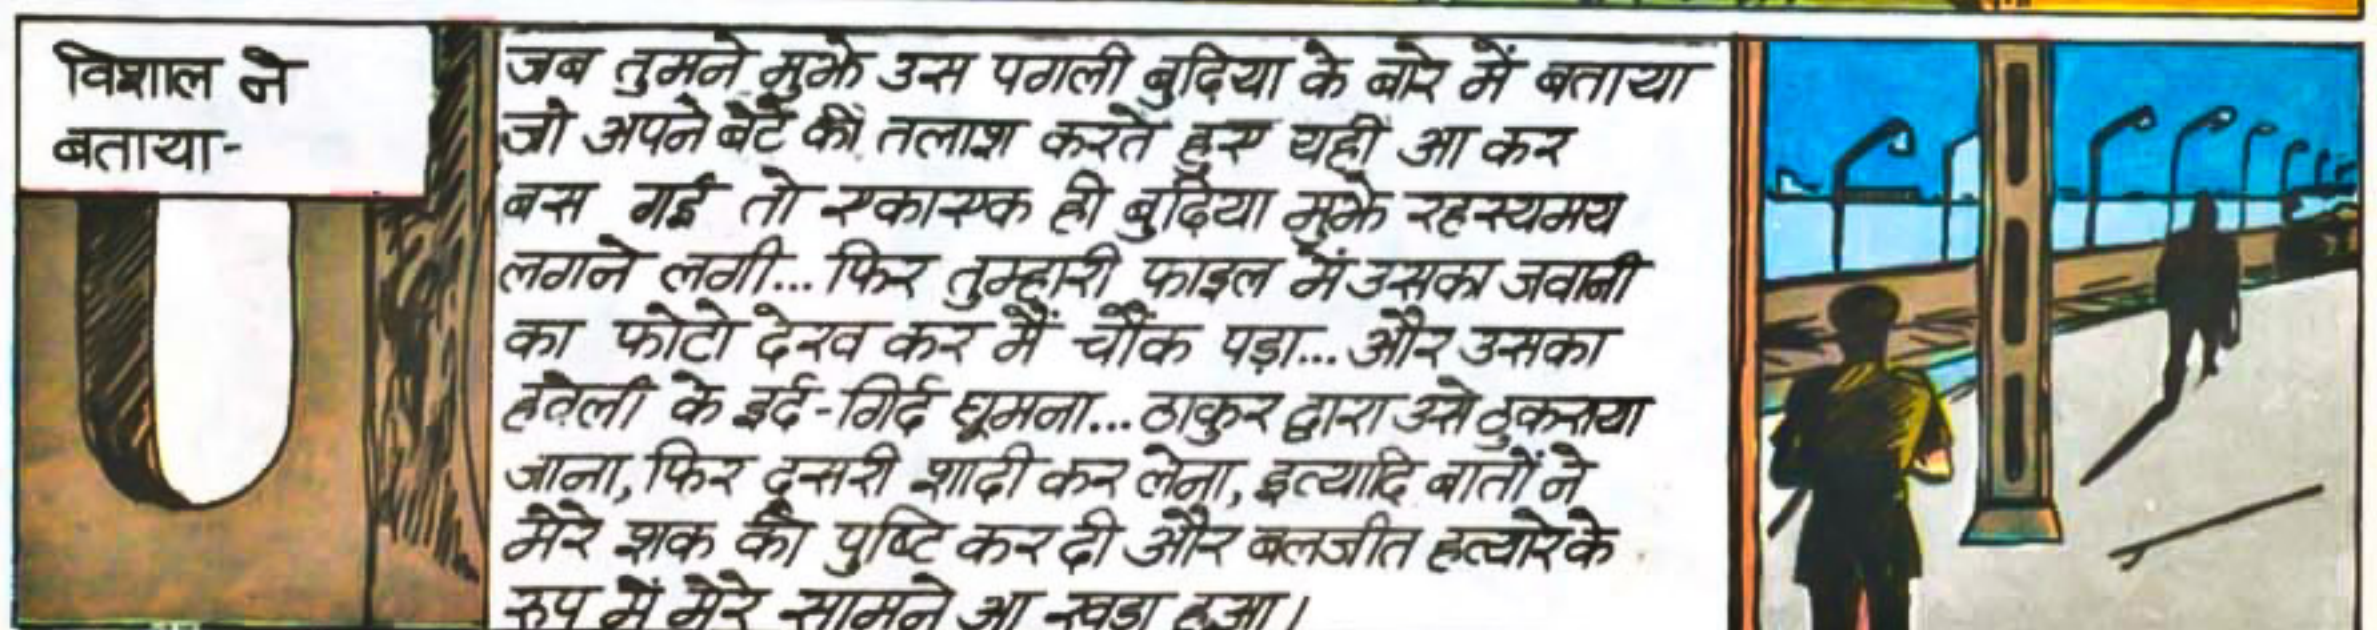 विशाल ने
बताया-
जब तुमने मुझे उस पगली बुढ़िया के बारे में बताया
जो अपने बेटे की तलाश करते हुए यहीं आ कर
बस गई तो एकाएक ही बुढ़िया मुझे रहस्यमय
लगने लगी... फिर तुम्हारी फाइल में उसका जवानी
का फोटो देख कर मैं चौंक पड़ा... और उसका
हवेली के इर्द-गिर्द घूमना... ठाकुर द्वारा उसे ठुकराया
जाना, फिर दूसरी शादी कर लेना, इत्यादि बातों ने
मेरे शक की पुष्टि कर दी और बलजीत हत्यारे के
रूप में मेरे सामने आ खड़ा हुआ।